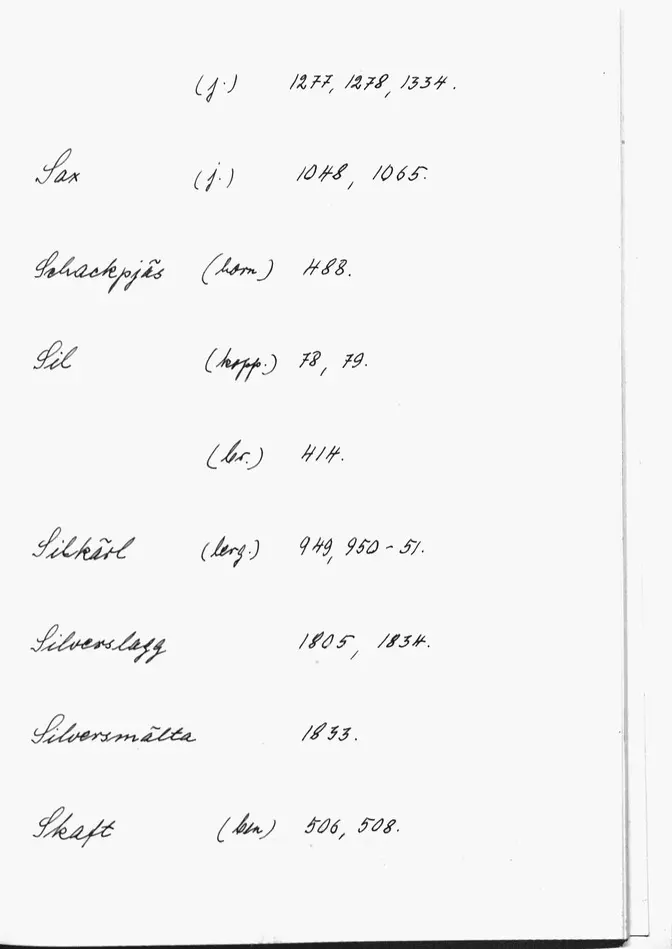 (j.) 1277, 1278, 1334.
Sax (j.) 1048, 1065.
Schackpjäs (horn) 488.
Sil (kopp.) 78, 79.
(br.) 414.
Silkärl (lerg.) 949, 950-51.
Silverslagg 1805, 1834.
Silversmälta 1833.
Skaft (ben) 506, 508.